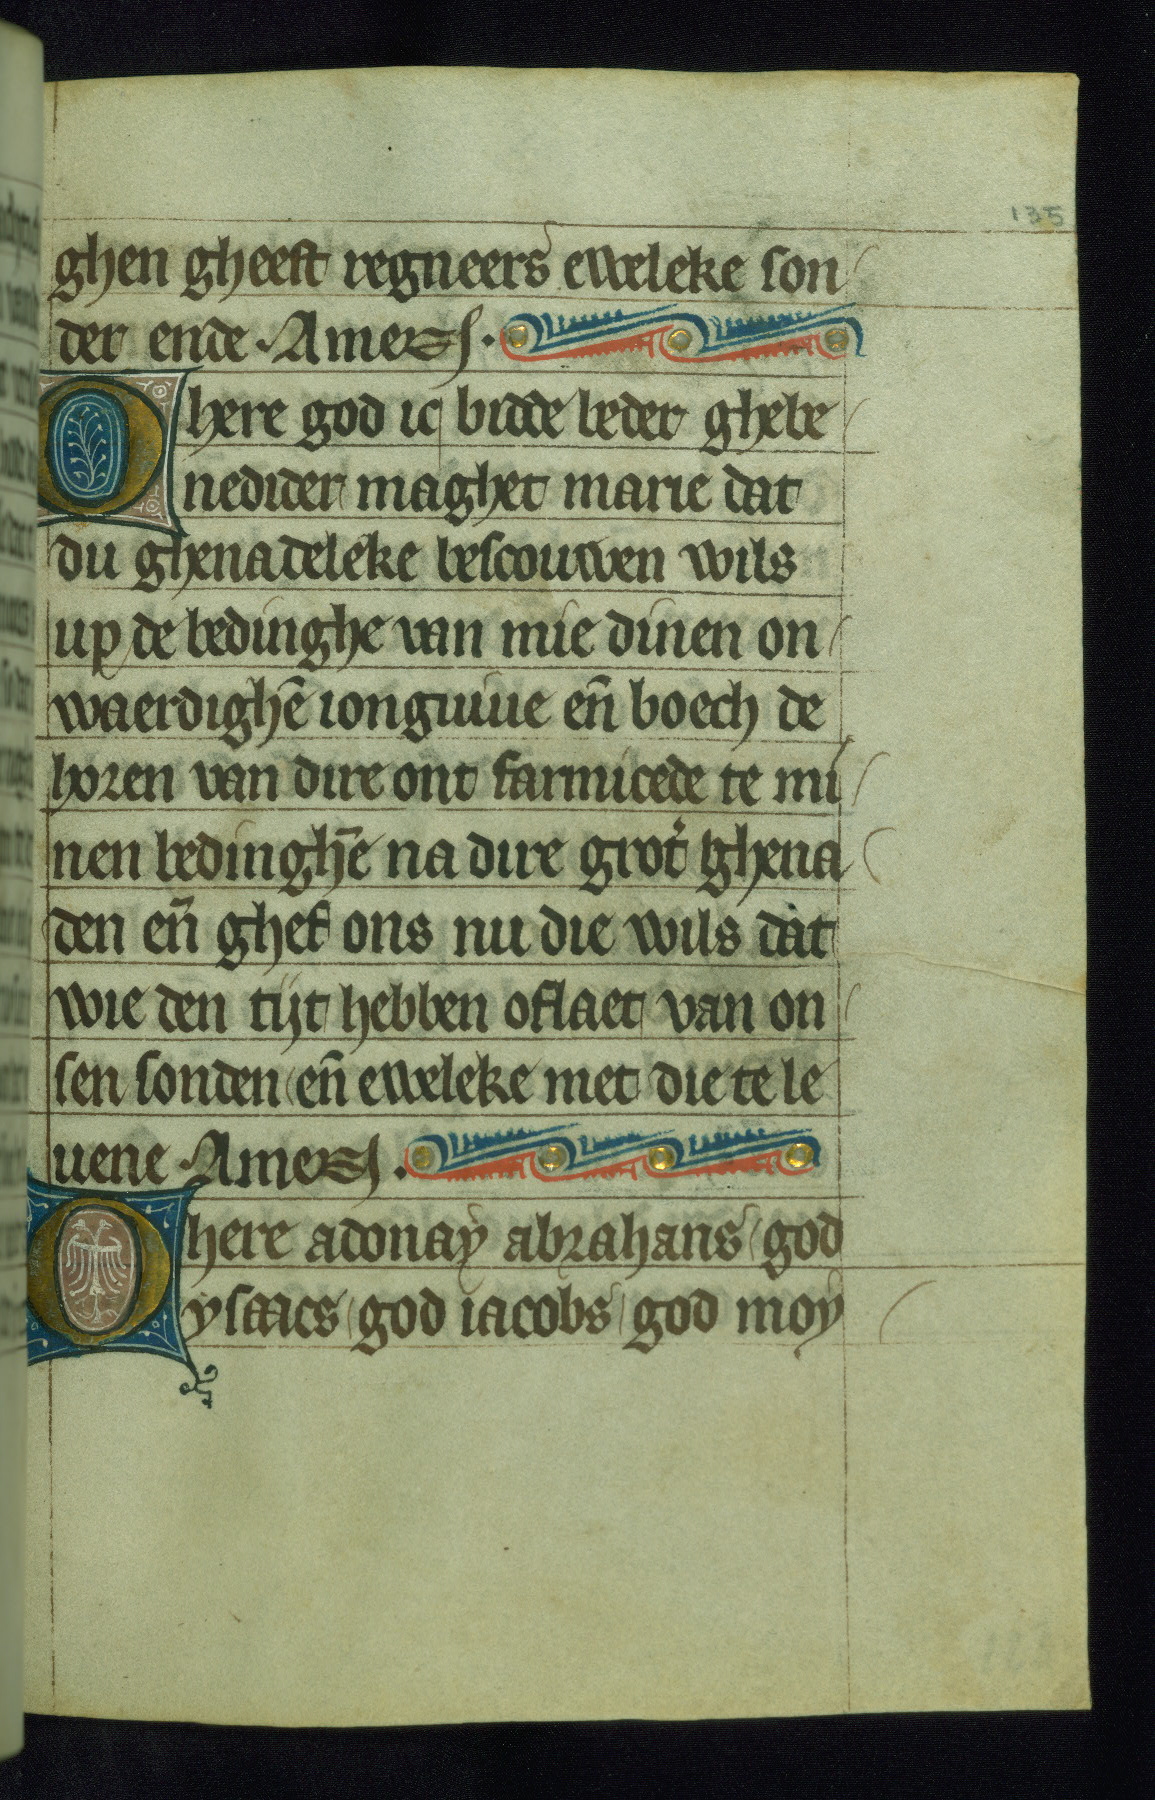 135
ghen gheest regneers eweleke son
der ende · Amen ·
O here god ic bidde beder ghebe
nedider maghet marie dat
du ghenadeleke bescouwen wils
up de bedinghe van mie dinen on
waerdighē ionguiue en̄ boech de
horen van dire ont farmicede te mi
nen bedinghē na dire grot͛ ghena
den en̄ ghef ons nu die wils dat
wie den tijt hebben oflaet van on
sen sonden en̄ eweleke met die te le
uene · Amen ·
O here adonay abrahans god
ysaacs god iacobs god moy